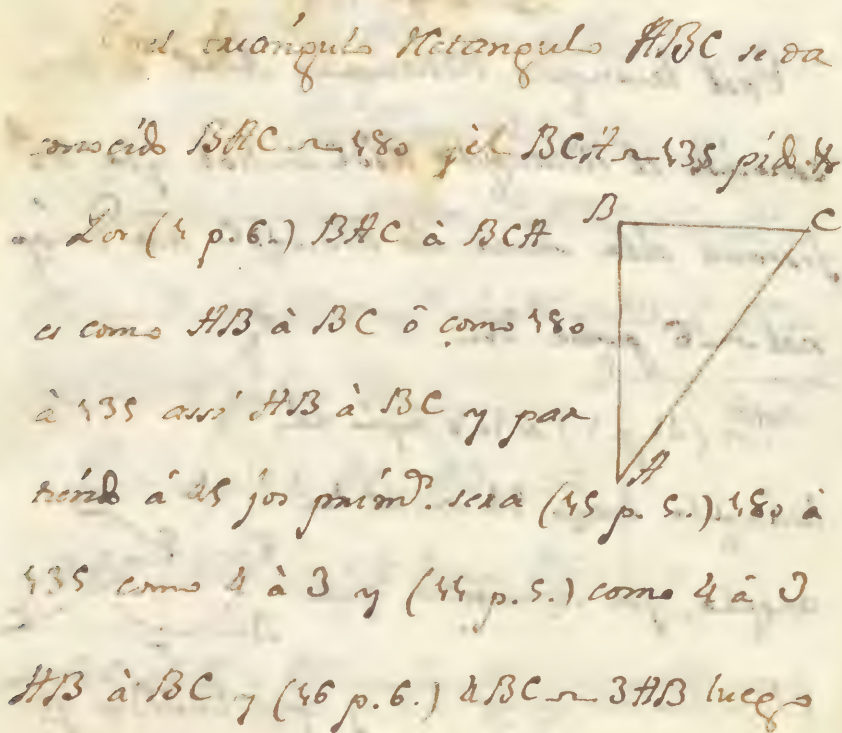 el triángulo Rectangulo ABC se da
conocido BAC ~ 180 y el BCA ~ 135 pido
Por (1 p. 6.) BAC à BCA
B
C
es como AB à BC ô como 180
à 135 assi AB à BC y par
A
tiendo á 45 los prim.ᵒˢ sera (15 p. 5.) 180 à
135 como 4 à 3 y (11 p. 5.) como 4 â 3
AB à BC y (16 p. 6.) 4BC ~ 3AB luego